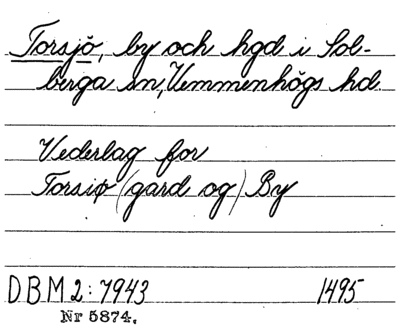 Torsjö, by och hgd i Sol-
berga sn, Vemmenhögs hd.
Vederlag for
Torsiø (gard og) By
DBM 2: 7943 1495
Nr 5874.